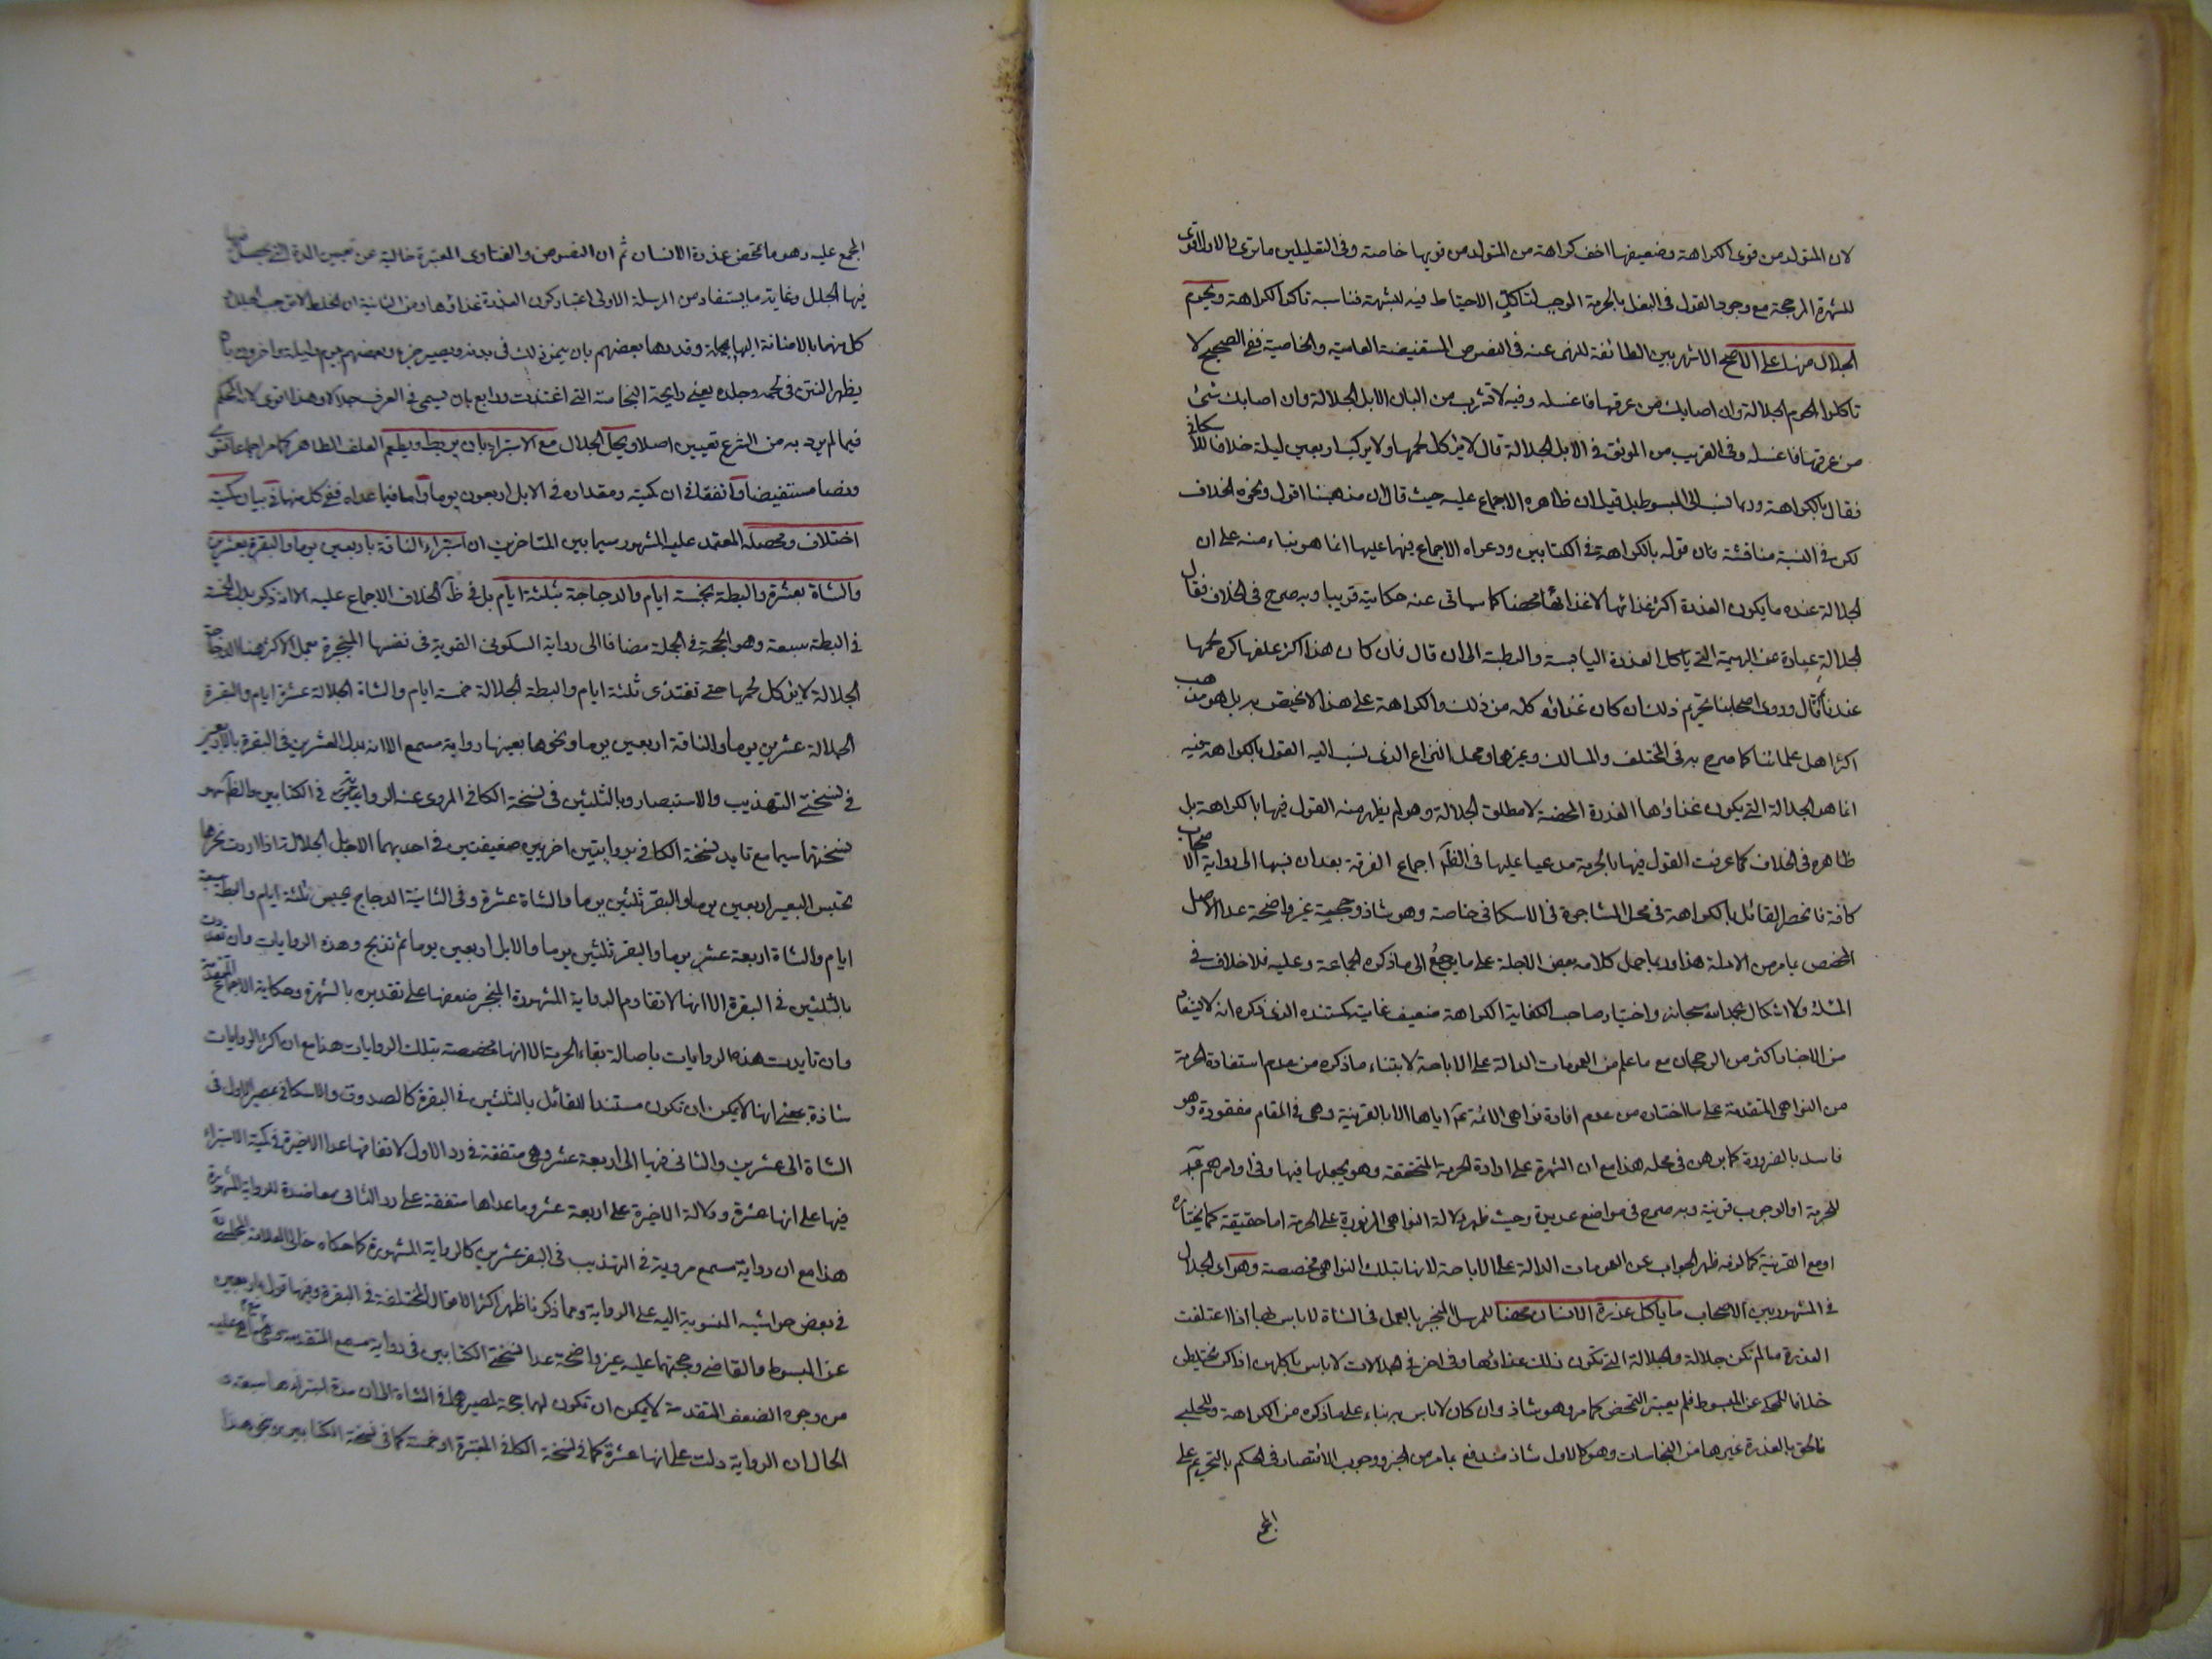 لان المتولد من قوى الكراهة وضعيفها اخف كراهة من المتولد من قويها خاصة وفى التعليلين ما ترى والاولى
للشهرة المرجحة مع وجود القول فى البغل بالحرمة الموجب لتاكد الاحتياط فيه للشبهة فناسبه تاكد الكراهة ويحرم
الجلال منها على الاصح الاشهر بين الطائفة للنهى عنه فى النصوص المستفيضة العامية والخاصية ففى الصحيح لا
تاكلوا لحوم الجلالة وان اصابك من عرقها فاغسله وفيه لا تشرب من البان الابل الجلالة وان اصابك شئ
من عرقها فاغسله وفى القريب من الموثق فى الابل الجلالة قال لا يؤكل لحمها ولا يركب اربعين ليلة خلافا للاسكافى
فقال بالكراهة وربما نسب الى المبسوط بل قيل ان ظاهره الاجماع عليه حيث قال ان مذهبنا اقول ونحوه الخلاف
لكن فى النسبة مناقشة فان قوله بالكراهة فى الكتابين ودعواه الاجماع فيهما عليها انما هو بناء منه على ان
الجلالة عنده ما يكون العذرة اكثر غذائها لا غذائها محضا كما سياتى عنه حكايته قريبا وبه صرح فى الخلاف فقال
الجلالة عبارة عن البهيمة التى ياكل العذرة اليابسة والرطبة الى ان قال فان كان هذا اكثر علفها كره لحمها
عندنا ثم قال وروى اصحابنا تحريم ذلك ان كان غذائه كله من ذلك والكراهة على هذا لا يختص به بل هو مذهب
اكثر اهل علمائنا كما صرح به فى المختلف والمسالك وغيرهما ومحل النزاع الذى نسب اليه القول بالكراهة فيه
انما هو الجلالة التى يكون غذاؤها العذرة المحضة لا مطلق الجلالة وهو لم يظهر منه القول فيها بالكراهة بل
ظاهره فى الخلاف كما عرفت القول فيها بالحرمة مدعيا عليها فى الظاهر اجماع الفرقة بعد ان نسبها الى رواية الاصحاب
كافة فانحصر القائل بالكراهة فى محل المشاجرة فى الاسكافى خاصة وهو شاذ وحجيته غير واضحة عدا الاصل
المخصص بما مر من الادلة هذا وربما حمل كلامه بعض الاجلة على ما يرجع الى ما ذكره الجماعة وعليه فلا خلاف فى
المسئلة ولا اشكال بحمد الله سبحانه واختيار صاحب الكفاية الكراهة ضعيف غايته كمستنده الذى ذكره انه لا يستفاد
من الاخبار اكثر من الرجحان مع ما علم من العمومات الدالة على الاباحة لابتناء ما ذكره من عدم استفادة الحرمة
من النواهى المتقدمة على ما اختاره من عدم افادة نواهى الائمة ع اياها الا بالقرينة وهى فى المقام مفقودة وهو
فاسد بالضرورة كما برهن فى محله هذا مع ان الشهرة على ارادة الحرمة المتحققة وهو يجعلها فيها وفى اوامرهم ع
للحرمة او الوجوب قرينة وبه صرح فى مواضع عديدة وحيث ظهر دلالة النواهى المزبورة على الحرمة اما حقيقة كما يختاره
او مع القرينة كما لزمه ظهر الجواب عن العمومات الدالة على الاباحة لانها بتلك النواهى مخصصة وهو اى الجلال
فى المشهور بين الاصحاب ما ياكل عذرة الانسان محضا للمرسل المنجبر بالعمل فى الشاة لا باس بها اذا اعتلفت
العذرة ما لم تكن جلالة والجلالة التى تكون ذلك غذاؤها وفى اخر فى الجلالات لا باس باكلهن اذا كن يختلطن
خلافا للمحكى عن المبسوط فلم يعتبر التمحض كما مر وهو شاذ وان كان لا باس به بناء على ما ذكره من الكراهة وللحلبى
فالحق بالعذرة غيرها من النجاسات وهو كالاول شاذ مندفع بما مر من الخبر ووجوب الاقتصار فى الحكم بالتحريم على
المجمع
المجمع عليه وهو ما تمحض عذرة الانسان ثم ان النصوص والفتاوى المعتبرة خالية عن تعيين المدة التى يحصل فيها
فيها الجلل وغايته ما يستفاد من المرسلة الاولى اعتبار كون العذرة غذاؤها ومن الثانية ان الخلط لا توجب الجلل
كل منهما بالاضافة اليها مجملة وقدرها بعضهم بان ينمو ذلك فى بدنه ويصير جزء وبعضهم بيوم وليلة واخرون بان
يظهر النتن فى لحمه وجلده يعنى رايحة النجاسة التى اغتذت ورابع بان يسمى فى العرف جلالا وهذا اقوى لانه المحكم
فيما لم يرد به من الشرع تعيين اصلا ويحل الجلال مع الاستبراء بان يربط ويطعم العلف الطاهر كما مر اجماعا فتوى
ونصا مستفيضا واتفقا فى ان كميته ومقداره فى الابل اربعون يوما واما فيما عداه ففى كل منهما فى بيان كميته
اختلاف ومحصله المعتمد عليه المشهور سيما بين المتاخرين ان استبراء الناقة باربعين يوما والبقرة بعشرين
والشاة بعشرة والبطة بخمسة ايام والدجاجة بثلثة ايام بل فى ظاهر الخلاف الاجماع عليه الا انه ذكر بدل الخمسة
فى البطة سبعة وهو الحجة فى الجملة مضافا الى رواية السكونى القوية فى نفسها المنجبرة بعمل الاكثر هنا الدجاجة
الجلالة لا يؤكل لحمها حتى تغتذى ثلثة ايام والبطة الجلالة خمسة ايام والشاة الجلالة عشرة ايام والبقرة
الجلالة عشرين يوما والناقة اربعين يوما ونحوها بعينها رواية مسمع الا انه بدل العشرين فى البقرة بالاربعين
فى نسختى التهذيب والاستبصار وبالثلثين فى نسخة الكافى المروى عنه الروايتين فى الكتابين فالظاهر سهو
نسختهما سيما مع تايد نسخة الكافى بروايتين اخريين ضعيفتين فى احديهما الابل الجلالة اذا اردت نحرها
تحتبس البعير اربعين يوما والبقر ثلثين يوما والشاة عشرة وفى الثانية الدجاج يحبس ثلثة ايام والبطة سبعة
ايام والشاة اربعة عشر يوما والبقر ثلثين يوما والابل اربعين يوما ثم تذبح وهذه الروايات وان تعددت
بالثلثين فى البقرة الا انها لا تقاوم الرواية المشهورة المنجبر ضعفها على تقديره بالشهرة وحكاية الاجماع المتقدمة
وان تايدت هذه الروايات باصالة بقاء الحرمة الا انها مخصصة بتلك الروايات هذا مع ان اكثر الروايات
شاذة بمعنى انها لا يمكن ان تكون مستندا للقائل بالثلثين فى البقرة كالصدوق والاسكافى لمصير الاول فى
الشاة الى عشرين والثانى فيها الى اربعة عشر وهى متفقة فى رد الاول لاتفاقها عدا الاخيرة فى كمية الاستبراء
فيها على انها عشرة ودلالة الاخيرة على اربعة عشر وما عداها متفقة على رد الثانى معاضدة للرواية المشهورة
هذا مع ان رواية مسمع مروية فى التهذيب فى البقر عشرين كالرواية المشهورة كما حكاه خالى العلامة المجلسى
فى بعض حواشيه المنسوبة اليه على الرواية ومما ذكرنا ظهر اكثر الاقوال المختلفة فى البقرة وفيها قول باربعين
عن المبسوط والقاضى وحجتهما عليه غير واضحة عدا نسختى الكتابين فى رواية مسمع المتقدمة
من وجوه الضعف المتقدمة لا يمكن ان تكون لهما حجة لمصيرهما فى الشاة الى ان مدة استبراءها سبعة
الحال ان الرواية دلت على انها عشرة كما فى نسخة الكافى المعتبرة او خمسة كما فى نسخة الكتابين